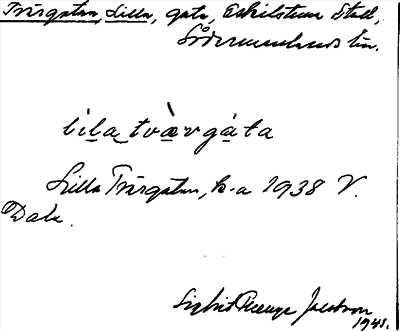 Tvärgatan, Lilla, gata, Eskilstuna Stad,
Södermanlands län.
lila tvärgata
Lilla Tvärgatan, k-a 1938 V.
Dala.
Jacobson
1941.